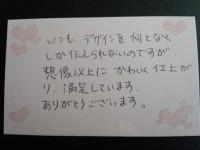 いつも デザインを 何となく
しか伝えられないのですが、
想像以上に かわいく 仕上が
り、満足しています。
ありがとうございます。